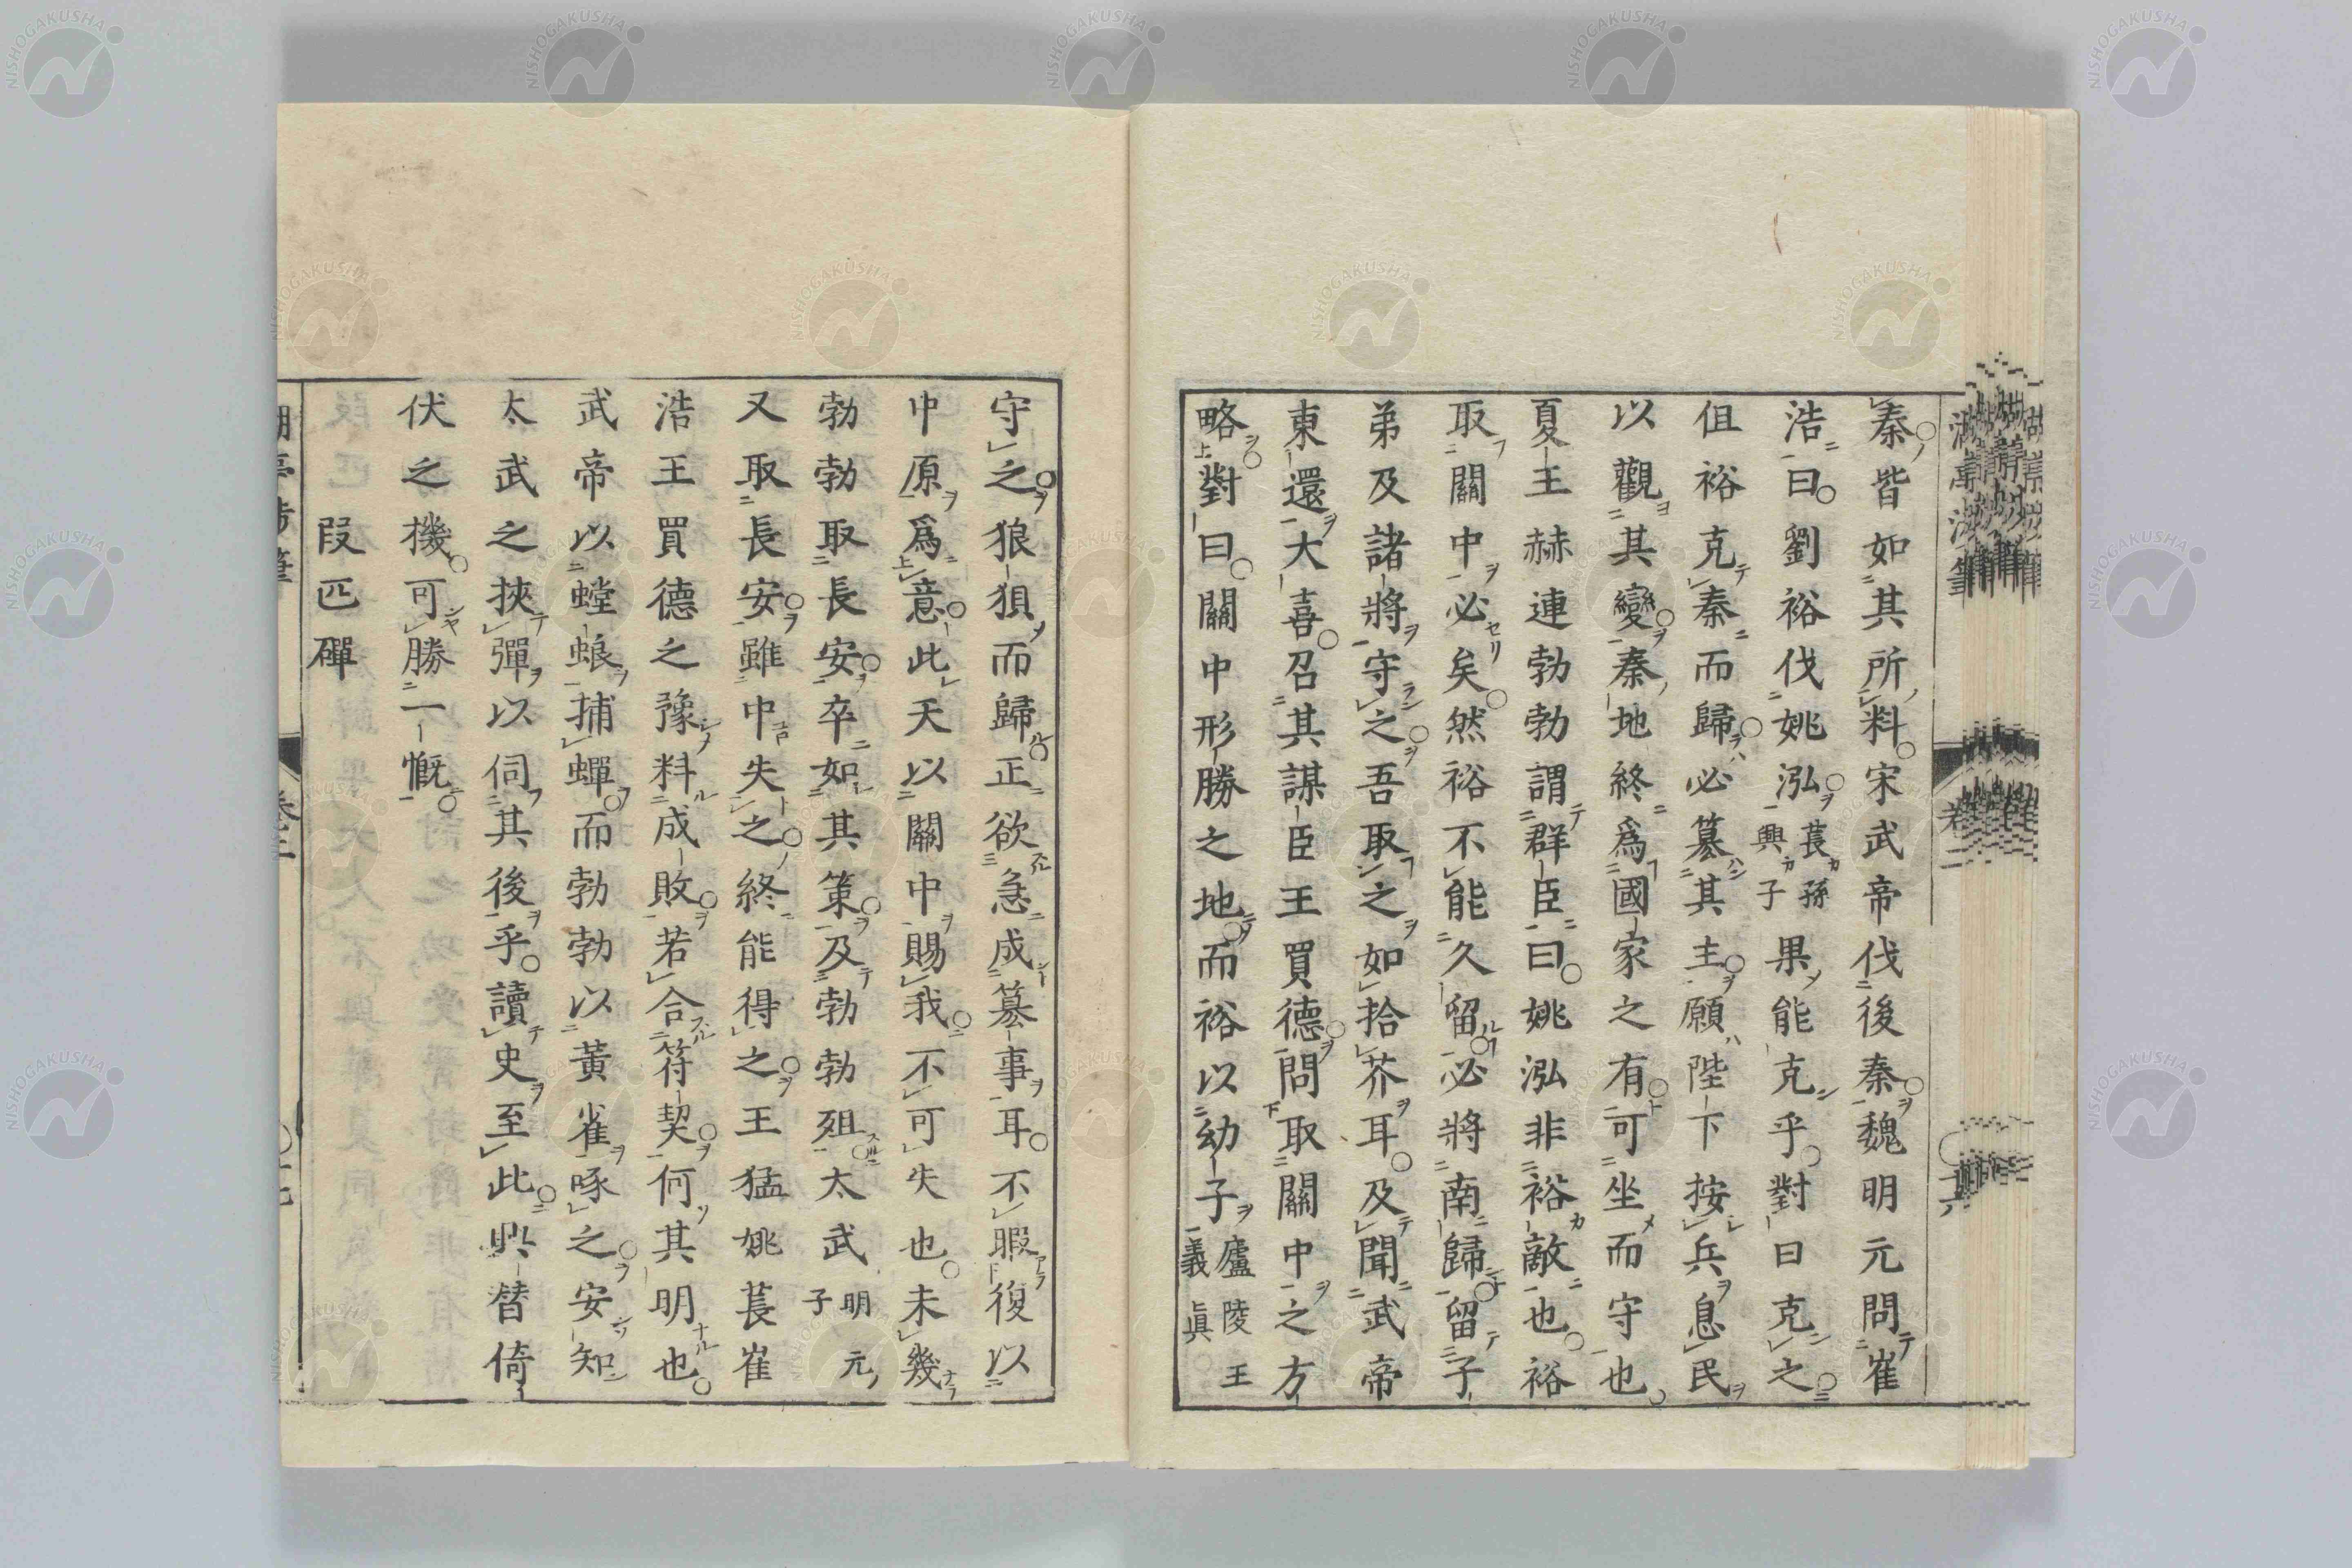 秦皆如其所料宋武帝伐後秦魏明元問崔
浩曰劉裕伐姚泓萇孫興子果能克乎對曰克之
但裕克秦而歸必簒其主願陛下按兵息民
以觀其變秦地終爲國家之有可坐而守也
夏王赫連勃勃謂群臣曰姚泓非裕敵也裕
取關中必矣然裕不能久留必將南歸留子
弟及諸將守之吾取之如拾芥耳及聞武帝
東還大喜召其謀臣王買德問取關中之方
略對曰關中形勝之地而裕以幼子廬陵王義眞
守之狼狽而歸正欲急成簒事耳不暇復以
中原爲意此天以關中賜我不可失也未幾
勃勃取長安卒如其策及勃勃殂太武明元子
又取長安雖中失之終能得之王猛姚萇崔
浩王買德之豫料成敗若合符契何其明也
武帝以螳蜋捕蟬而勃勃以黃雀啄之安知
太武之挾彈以伺其後乎讀史至此興替倚
伏之機可勝一慨
段匹磾
NISHOGAKUSHA